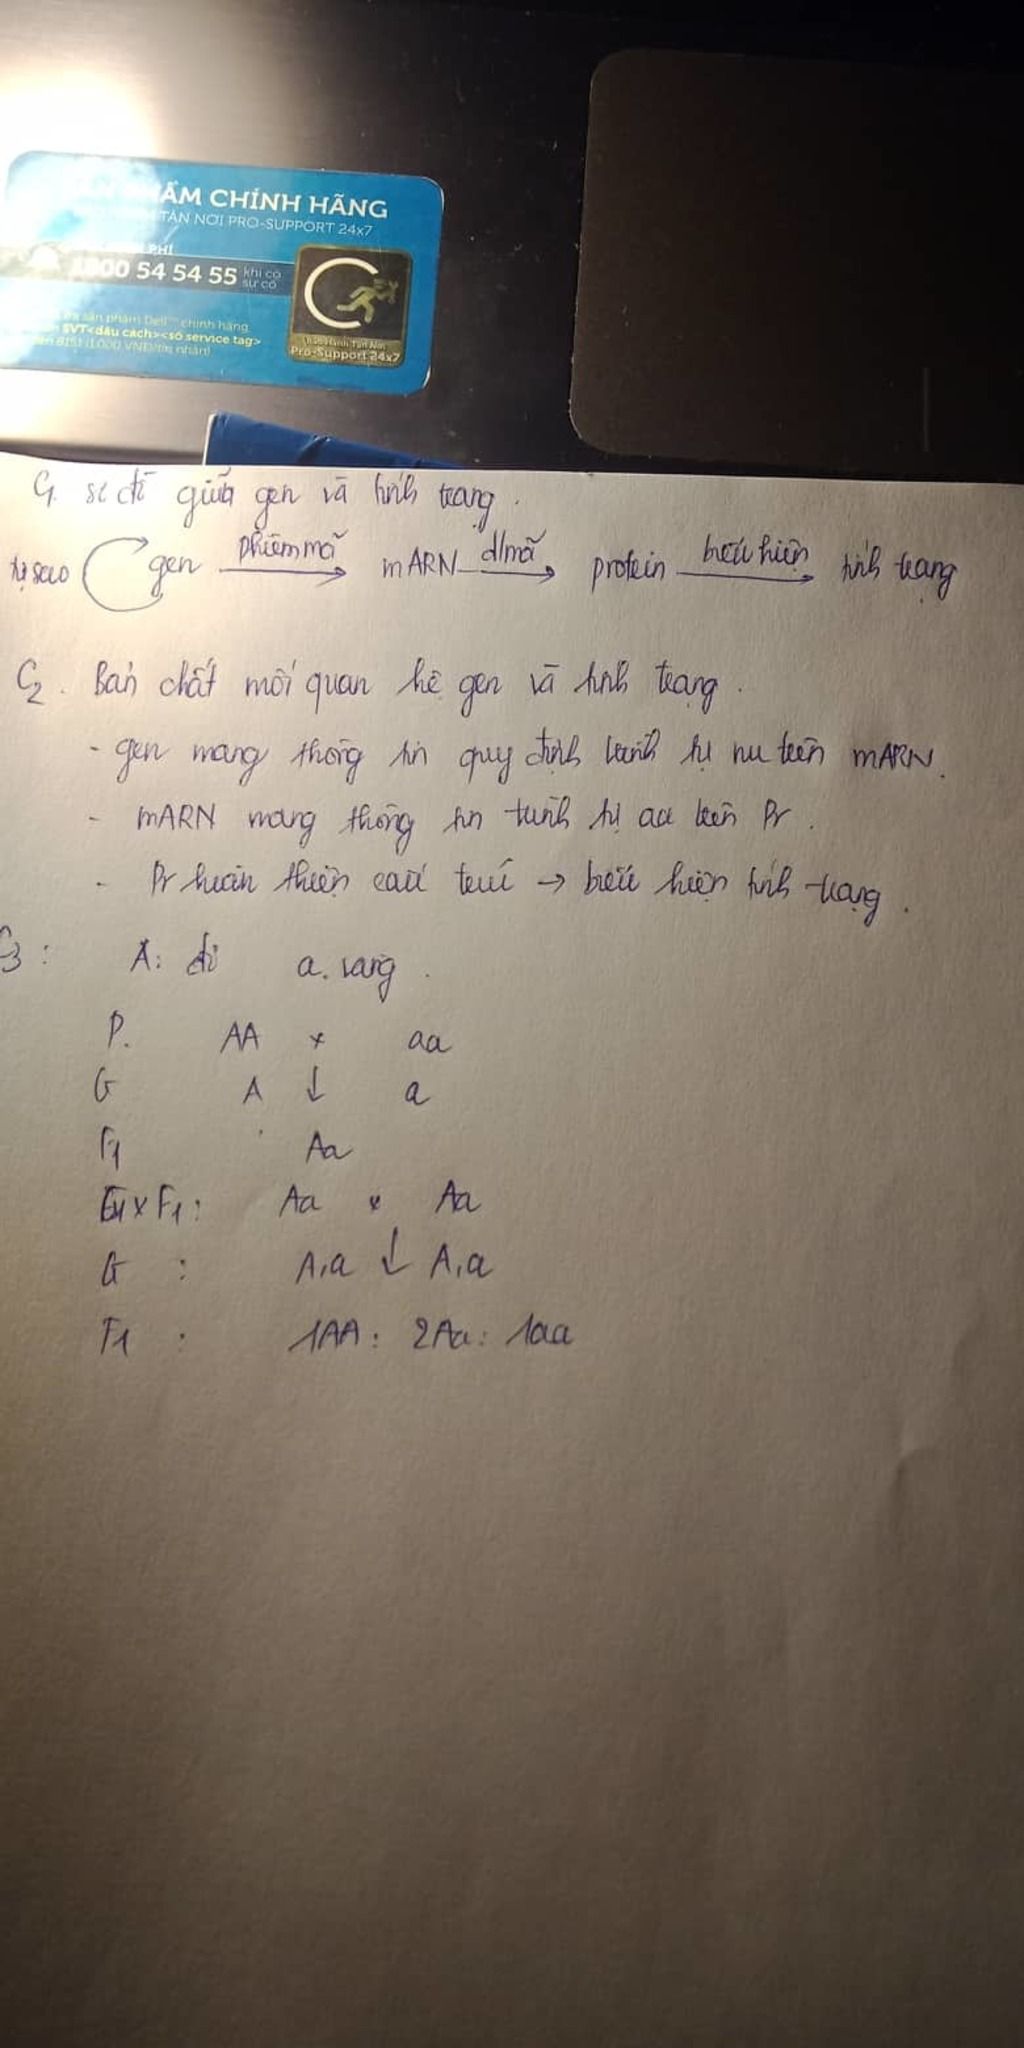 ẨM CHÍNH HÃNG
TẬN NƠI PRO-SUPPORT 24x7
PHÍ
1800 54 54 55 khi có sự cố
sản phẩm Dell™ chính hãng,
SVT<dấu cách><số service tag>
8151 (1.000 VND/tin nhắn)
Bảo Hành Tận Nơi
Pro-Support 24x7
C1. sơ đồ giữa gen và tính trạng.
tự sao gen phiên mã mARN d/mã protein biểu hiện tính trạng
C2. Bản chất mối quan hệ gen và tính trạng.
- gen mang thông tin quy định trình tự nu trên mARN.
- mARN mang thông tin trình tự aa trên Pr.
- Pr hoàn thiện cấu trúc → biểu hiện tính trạng.
C3: A: đỏ a. vang.
P. AA x aa
G A ↓ a
F1 Aa
F1 x F1: Aa x Aa
G : A,a ↓ A,a
F1 : 1AA : 2Aa : 1aa